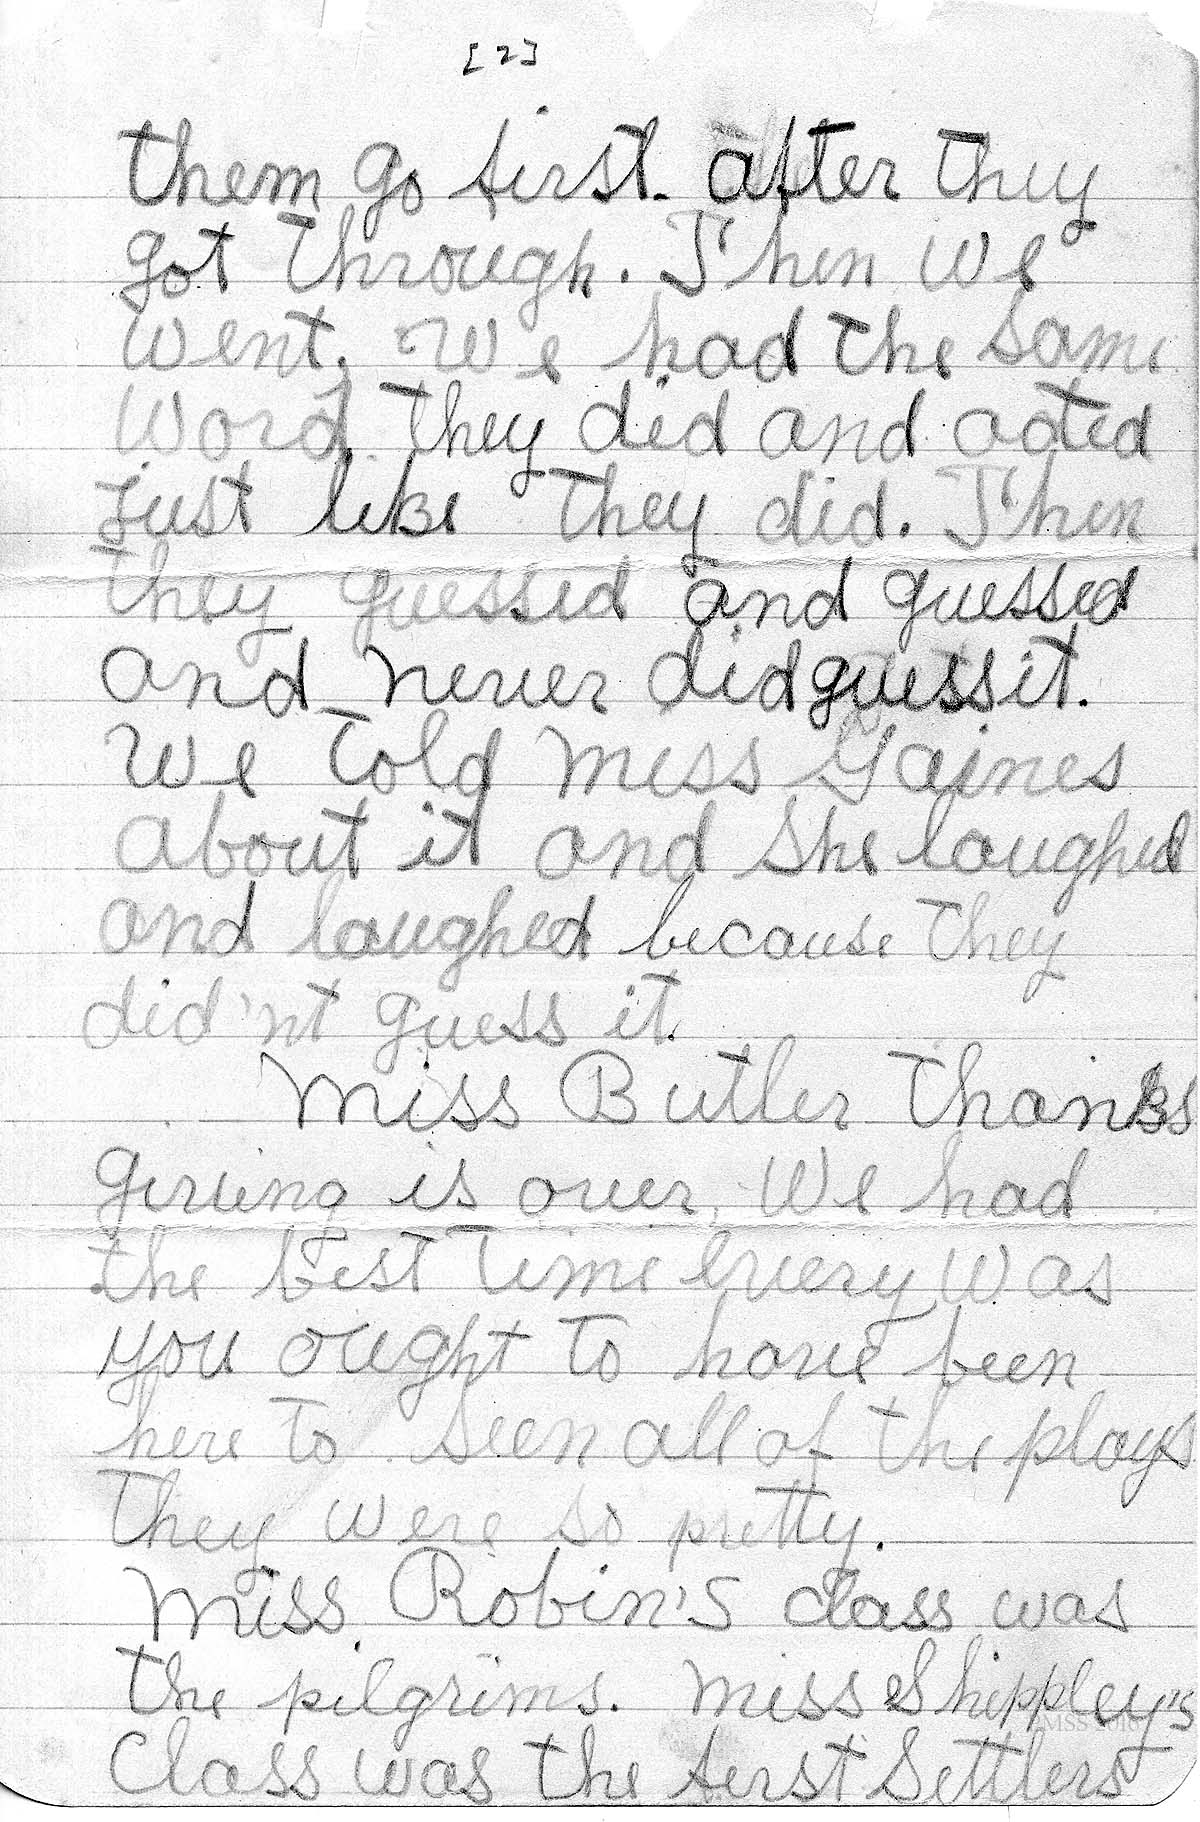 [2]
them go first. after they
got through. Then we
went. We had the same
word they did and acted
just like they did. Then
they guessed and guessed
and never did guess it.
We told miss Gaines
about it and she laughed
and laughed because they
did'nt guess it.
Miss Butler thanks
giving is over, We had
the best time every was
you ought to have been
here to seen all of the plays
they were so pretty.
Miss Robin's class was
the pilgrims. miss Shippley's
Class was the first Settlers